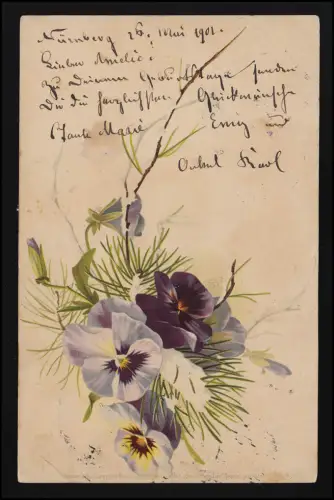 Nürnberg 26. Mai 1901.
Liebe Amelie!
Zu Deinem Geburtstage senden
Dir die herzlichsten Glückwünsche
Tante Marie und
Onkel Karl